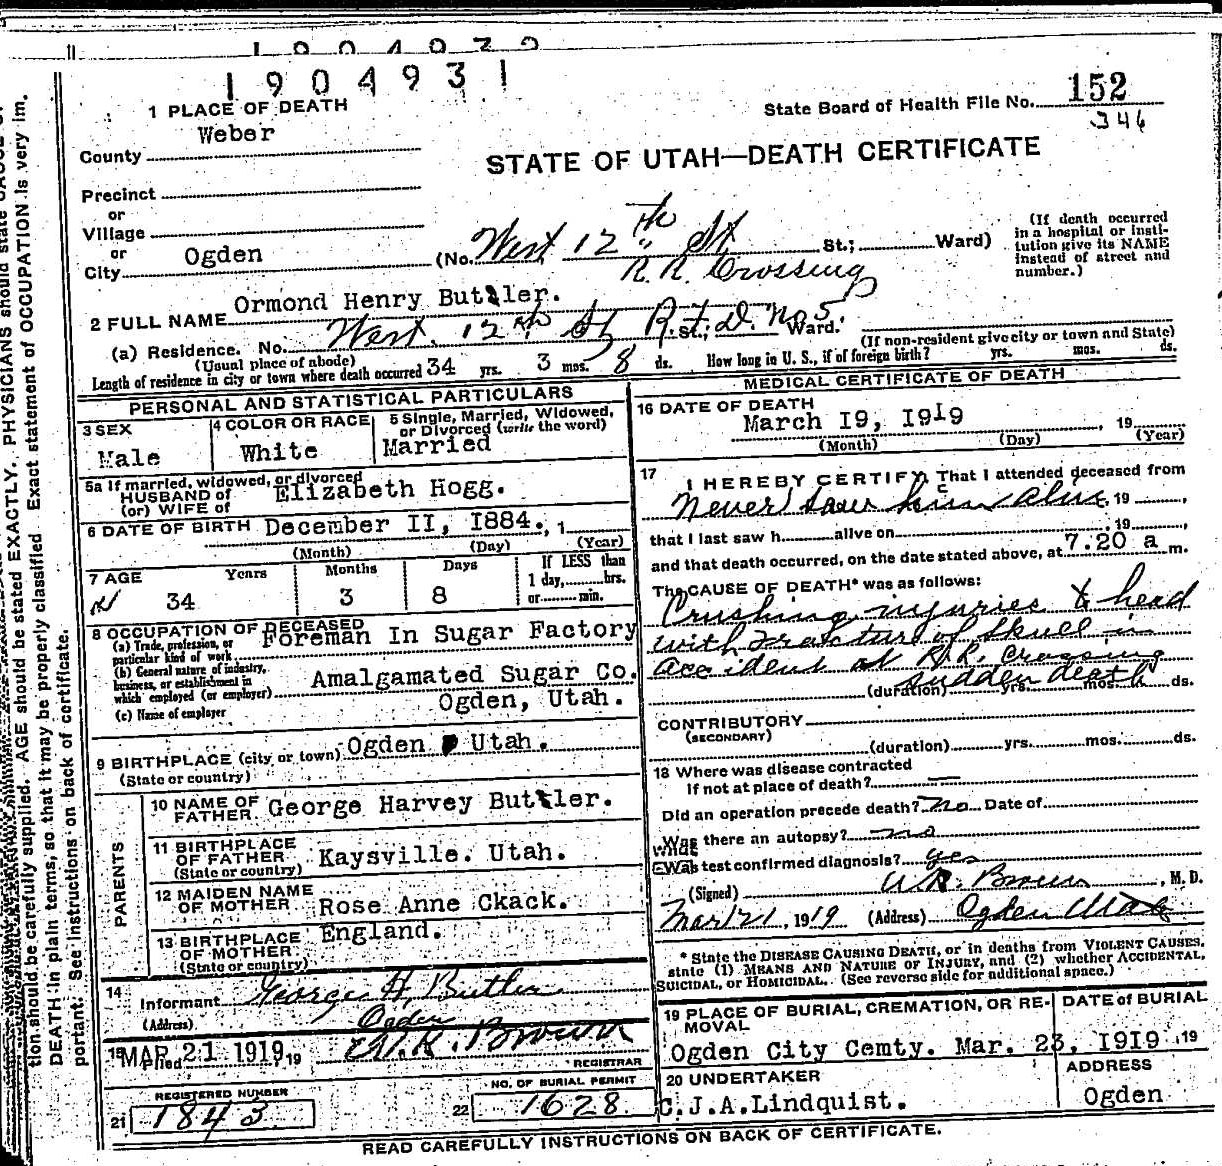 1904932
1904931
1 PLACE OF DEATH
State Board of Health File No. 152
346
County Weber
STATE OF UTAH—DEATH CERTIFICATE
Precinct
or
Village
or
City Ogden (No. West 12th St St.; Ward)
R.R. Crossing
(If death occurred
in a hospital or insti-
tution give its NAME
instead of street and
number.)
2 FULL NAME Ormond Henry Buttler.
(a) Residence. No. West 12th St R.f.D. No 5 St.; Ward.
(Usual place of abode)
(If non-resident give city or town and State)
Length of residence in city or town where death occurred 34 yrs. 3 mos. 8 ds. How long in U. S., if of foreign birth? yrs. mos. ds.
PERSONAL AND STATISTICAL PARTICULARS
3 SEX
Male
4 COLOR OR RACE
White
5 Single, Married, Widowed,
or Divorced (write the word)
Married
5a If married, widowed, or divorced
HUSBAND of
(or) WIFE of Elizabeth Hogg.
6 DATE OF BIRTH December II, 1884. , 1
(Month) (Day) (Year)
7 AGE Years Months Days If LESS than
1 day, hrs.
or min.
34 3 8
8 OCCUPATION OF DECEASED
(a) Trade, profession, or
particular kind of work Foreman In Sugar Factory
(b) General nature of industry,
business, or establishment in
which employed (or employer) Amalgamated Sugar Co.
(c) Name of employer Ogden, Utah.
9 BIRTHPLACE (city or town) Ogden Utah.
(State or country)
PARENTS
10 NAME OF
FATHER George Harvey Buttler.
11 BIRTHPLACE
OF FATHER
(State or country) Kaysville. Utah.
12 MAIDEN NAME
OF MOTHER Rose Anne Ckack.
13 BIRTHPLACE
OF MOTHER
(State or country) England.
14
Informant George H. Butler
(Address) Ogden
15 Filed MAR 21 1919 , 19 W.R. Brown
REGISTRAR
REGISTERED NUMBER
21 1843
NO. OF BURIAL PERMIT
22 1628
MEDICAL CERTIFICATE OF DEATH
16 DATE OF DEATH
March I9, I9I9 , 19
(Month) (Day) (Year)
17 I HEREBY CERTIFY, That I attended deceased from
Never saw him alive 19 ,
that I last saw h alive on , 19 ,
and that death occurred, on the date stated above, at 7.20 a m.
The CAUSE OF DEATH* was as follows:
Crushing injuries to head
with Fracture of Skull in
accident at R.R. Crossing
sudden death
(duration) yrs. mos. ds.
CONTRIBUTORY
(SECONDARY)
(duration) yrs. mos. ds.
18 Where was disease contracted
if not at place of death? —
Did an operation precede death? no Date of
Was there an autopsy? no
What test confirmed diagnosis? yes
(Signed) W.R. Brown , M. D.
Mar 21 , 1919 (Address) Ogden Utah
* State the DISEASE CAUSING DEATH, or in deaths from VIOLENT CAUSES,
state (1) MEANS AND NATURE OF INJURY, and (2) whether ACCIDENTAL,
SUICIDAL, or HOMICIDAL. (See reverse side for additional space.)
19 PLACE OF BURIAL, CREMATION, OR RE-
MOVAL
DATE of BURIAL
Ogden City Cemty. Mar. 23, I9I9 , 19
20 UNDERTAKER
C.J.A.Lindquist.
ADDRESS
Ogden
READ CAREFULLY INSTRUCTIONS ON BACK OF CERTIFICATE.
tion should be carefully supplied. AGE should be stated EXACTLY. PHYSICIANS should state CAUSE OF
DEATH in plain terms, so that it may be properly classified. Exact statement of OCCUPATION is very im-
portant. See instructions on back of certificate.